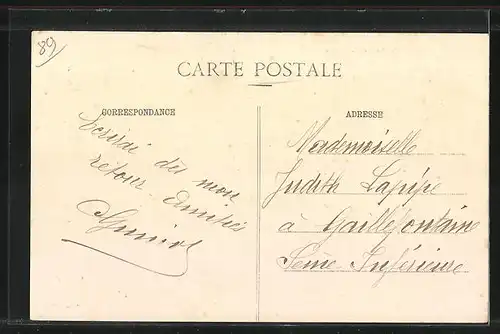 89
CARTE POSTALE
CORRESPONDANCE
ADRESSE
Ecrirai dès mon
retour. Amitiés
Mademoiselle
Judith Lapipe
à Gaillefontaine
Seine Inférieure